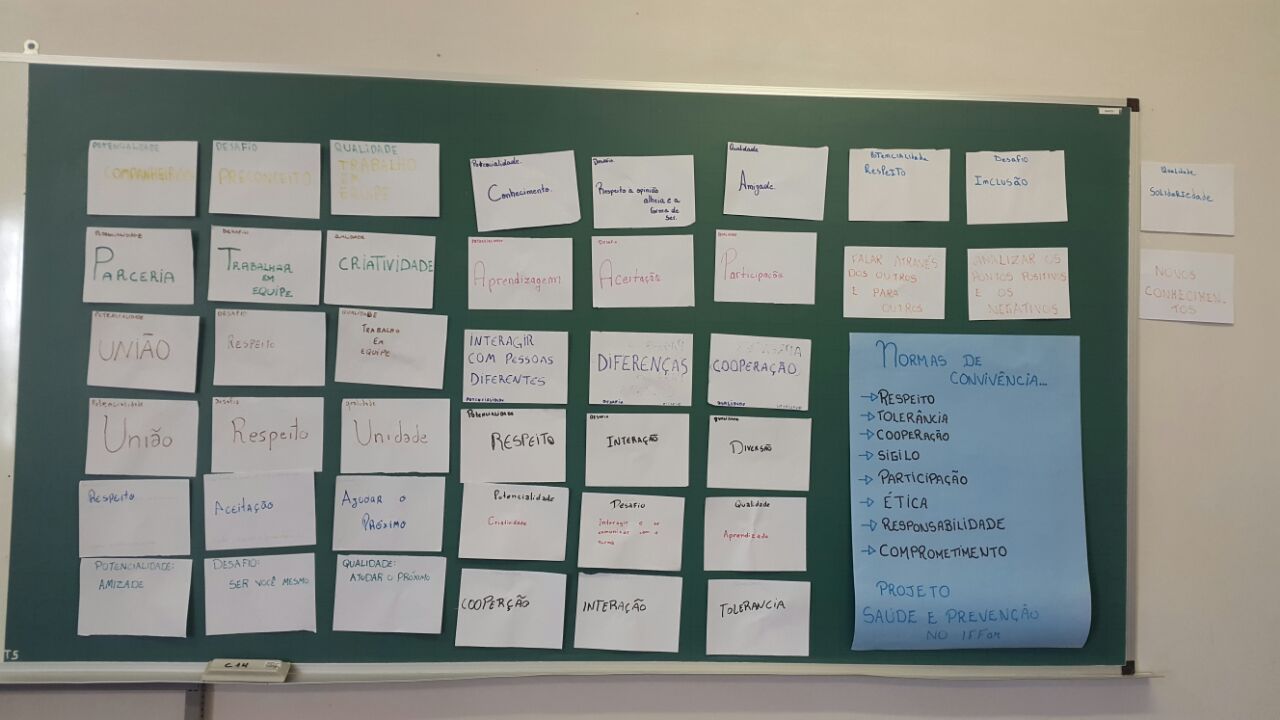 POTENCIALIDADE
DESAFIO
QUALIDADE
PRECONCEITO
TRABALHO
EM
EQUIPE
Potencialidade
Conhecimento.
Desafio
Respeito a opinião
alheia e a
forma de
ser.
Qualidade
Amizade.
Potencialidade
RESPEITO
Desafio
INCLUSÃO
Qualidade
SOLIDARIEDADE
POTENCIALIDADE
PARCERIA
DESAFIO
TRABALHAR
EM
EQUIPE
QUALIDADE
CRIATIVIDADE
Aprendizagem
Aceitação
Participação
FALAR ATRAVÉS
DOS OUTROS
E PARA
OUTROS
ANALIZAR OS
PONTOS POSITIVOS
E OS
NEGATIVOS
NOVOS
CONHECIMEN-
TOS
POTENCIALIDADE
UNIÃO
DESAFIO
RESPEITO
QUALIDADE
TRABALHO
EM
EQUIPE
INTERAGIR
COM PESSOAS
DIFERENTES
POTENCIALIDADE
DIFERENÇAS
DESAFIO
COOPERAÇÃO
QUALIDADE
Potencialidade
União
Desafio
Respeito
Qualidade
Unidade
POTENCIALIDADE
RESPEITO
DESAFIO
INTERAÇÃO
QUALIDADE
DIVERSÃO
Respeito
ACEITAÇÃO
AJUDAR O
PRÓXIMO
Potencialidade
Criatividade
Desafio
Interagir e se
comunicar com a
turma
Qualidade
Aprendizado
POTENCIALIDADE:
AMIZADE
DESAFIO:
SER VOCÊ MESMO
QUALIDADE:
AJUDAR O PRÓXIMO
COOPERÇÃO
INTERAÇÃO
TOLERANCIA
NORMAS DE
CONVIVÊNCIA...
→ RESPEITO
→ TOLERÂNCIA
→ COOPERAÇÃO
→ SIGILO
→ PARTICIPAÇÃO
→ ÉTICA
→ RESPONSABILIDADE
→ COMPROMETIMENTO
PROJETO
SAÚDE E PREVENÇÃO
NO IFFar
T5
C14